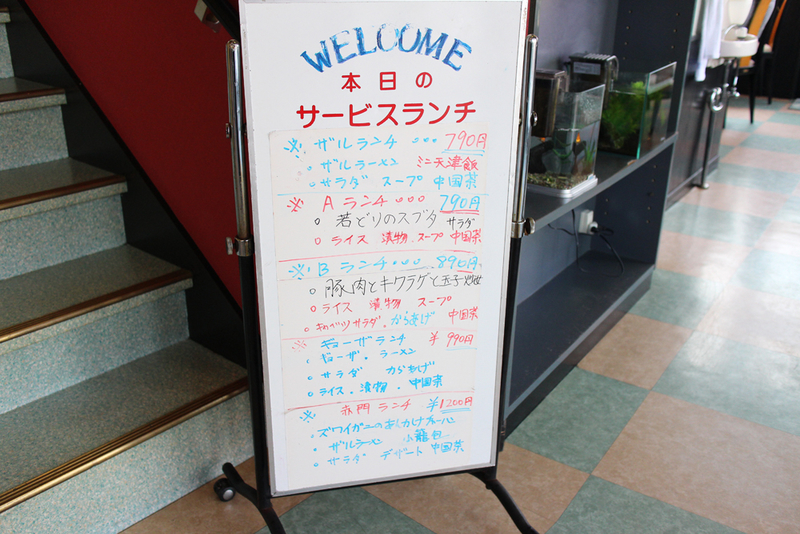 WELCOME
本日の
サービスランチ
※ ザルランチ 。。。 790円
。ザルラーメン ミニ天津飯
。サラダ スープ 中国茶
※ Aランチ 。。。 790円
。若どりのスブタ サラダ
。ライス 漬物 スープ 中国茶
※ Bランチ 。。。 890円
。豚肉とキクラゲと玉子炒め
。ライス 漬物 スープ
。キャベツサラダ . からあげ 中国茶
※ ギョーザランチ ¥990円
。ギョーザ . ラーメン
。サラダ からあげ
。ライス . 漬物 . 中国茶
※ 赤門ランチ ¥1200円
。ズワイガニのあんかけチャーハン
。ザルラーメン 小籠包
。サラダ デザート 中国茶